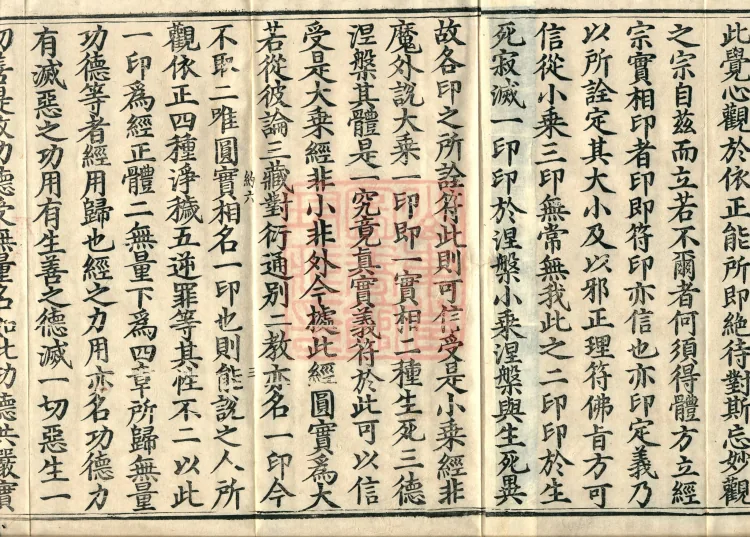 此覺心觀於依正能所即絕待對斯忘妙觀
之宗自茲而立若不爾者何須得體方立經
宗實相印者印即符印亦信也亦印定義乃
以所詮定其大小及以邪正理符佛旨方可
信從小乘三印無常無我此之二印印於生
死寂滅一印印於涅槃小乘涅槃與生死異
故各印之所詮符此則可信受是小乘經非
魔外說大乘一印即一實相二種生死三德
涅槃其體是一究竟真實義符於此可以信
受是大乘經非小非外今據此經圓實爲大
若從彼論三藏對衍通別二教亦名一印今
納六 三
不取二唯圓實相名一印也則能說之人所
觀依正四種淨穢五逆罪等其性不二以此
一印爲經正體二無量下爲四章所歸無量
功德等者經用歸也經之力用亦名功德力
有滅惡之功用有生善之德滅一切惡生一
切善是故功德受無量名如此功德共嚴實